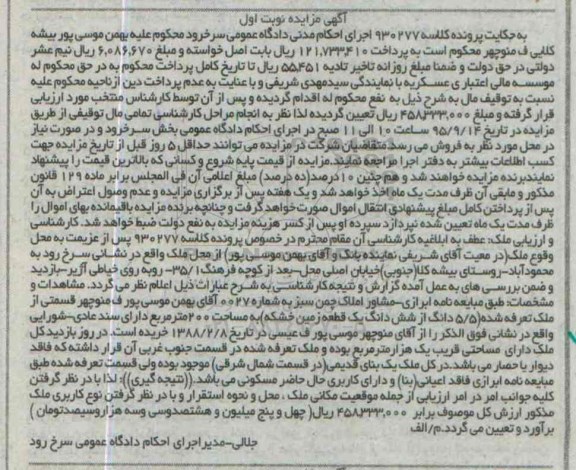 آگهی مزایده نوبت اول
به حکایت پرونده کلاسه ۹۳۰۲۷۷ اجرای احکام مدنی دادگاه عمومی سرخرود محکوم علیه بهمن موسی پور بیشه
کلایی ف منوچهر محکوم است به پرداخت ۱۲۱,۷۳۳,۴۱۰ ریال بابت اصل خواسته و مبلغ ۶,۰۸۶,۶۷۰ ریال نیم عشر
دولتی در حق دولت و ضمنا مبلغ روزانه تاخیر تادیه ۵۵,۴۵۱ ریال تا تاریخ کامل پرداخت محکوم به در حق محکوم له
موسسه مالی اعتباری عسکریه با نمایندگی سیدمهدی شریفی و با عنایت به عدم پرداخت دین از ناحیه محکوم علیه
نسبت به توقیف مال به شرح ذیل به نفع محکوم له اقدام گردیده و پس از آن توسط کارشناس منتخب مورد ارزیابی
قرار گرفته و مبلغ ۴۵۸,۳۳۳,۰۰۰ ریال تعیین گردیده لذا نظر به انجام مراحل کارشناسی تمامی مال توقیفی از طریق
مزایده در تاریخ ۹۵/۹/۱۴ ساعت ۱۰ الی ۱۱ صبح در اجرای احکام دادگاه عمومی بخش سرخرود و در صورت نیاز
در محل مورد نظر به فروش می رسد متقاضیان شرکت در مزایده می توانند حداقل ۵ روز قبل از تاریخ مزایده جهت
کسب اطلاعات بیشتر به دفتر اجرا مراجعه نمایند. مزایده از قیمت پایه شروع و کسانی که بالاترین قیمت را پیشنهاد
نمایند برنده مزایده خواهند شد و هم چنین ۱۰درصد(ده درصد) مبلغ اعلامی آن فی المجلس برابر ماده ۱۲۹ قانون
مذکور و مابقی آن ظرف مدت یک ماه اخذ خواهد شد و یک هفته پس از برگزاری مزایده و عدم وصول اعتراض به آن
پس از پرداختن کامل مبلغ پیشنهادی انتقال اموال صورت خواهد گرفت و چنانچه برنده مزایده باقیمانده بهای اموال را
ظرف مدت یک ماه تعیین شده نپردازد سپرده او پس از کسر هزینه مزایده به نفع دولت ضبط خواهد شد. کارشناسی
و ارزیابی ملک: عطف به ابلاغیه کارشناسی آن مقام محترم در خصوص پرونده کلاسه ۹۳۰۲۷۷ پس از عزیمت به محل
وقوع ملک(در معیت آقای شریفی نماینده بانک و آقای بهمن موسی پور) از محل ملک واقع در نشانی سرخ رود به
محمودآباد-روستای بیشه کلا(جنوبی)خیابان اصلی محل-بعد از کوچه فرهنگ۳۵/۱- روبه روی خیاطی آژیر-بازدید
و ضمن بررسی های به عمل آمده گزارش و نتیجه کارشناسی به شرح عبارات ذیل اعلام نظر می گردد. مشاهدات و
مشخصات: طبق مبایعه نامه ابرازی-مشاور املاک چمن سبز به شماره ۰۰۲۷ آقای بهمن موسی پور ف منوچهر قسمتی از
ملک تعرفه شده(۵/۵ دانگ از شش دانگ یک قطعه زمین خشکه)به مساحت ۲۰۰مترمربع دارای سند عادی-شورایی
واقع در نشانی فوق الذکر را از آقای منوچهر موسی پور ف عیسی در تاریخ ۱۳۸۸/۲/۸ خریده است. در روز بازدید کل
ملک دارای مساحتی قریب یک هزار مترمربع بوده و ملک تعرفه شده در قسمت جنوب غربی آن قرار داشته که فاقد
دیوار یا حصار می باشد.در کل ملک یک بنای قدیمی(در قسمت شمال شرقی) موجود بوده ولی قسمت تعرفه شده طبق
مبایعه نامه ابرازی فاقد اعیانی(بنا) و دارای کاربری حال حاضر مسکونی می باشد.((نتیجه گیری)): لذا با در نظر گرفتن
کلیه جوانب امر در امر ارزیابی از جمله موقعیت مکانی ملک ، محل و نحوه استقرار و با در نظر گرفتن نوع کاربری ملک
مذکور ارزش کل موصوف برابر ۴۵۸,۳۳۳,۰۰۰ ریال( چهل و پنج میلیون و هشتصدوسی وسه هزاروسیصدتومان )
برآورد و تعیین می گردد.م/الف
جلالی-مدیر اجرای احکام دادگاه عمومی سرخ رود